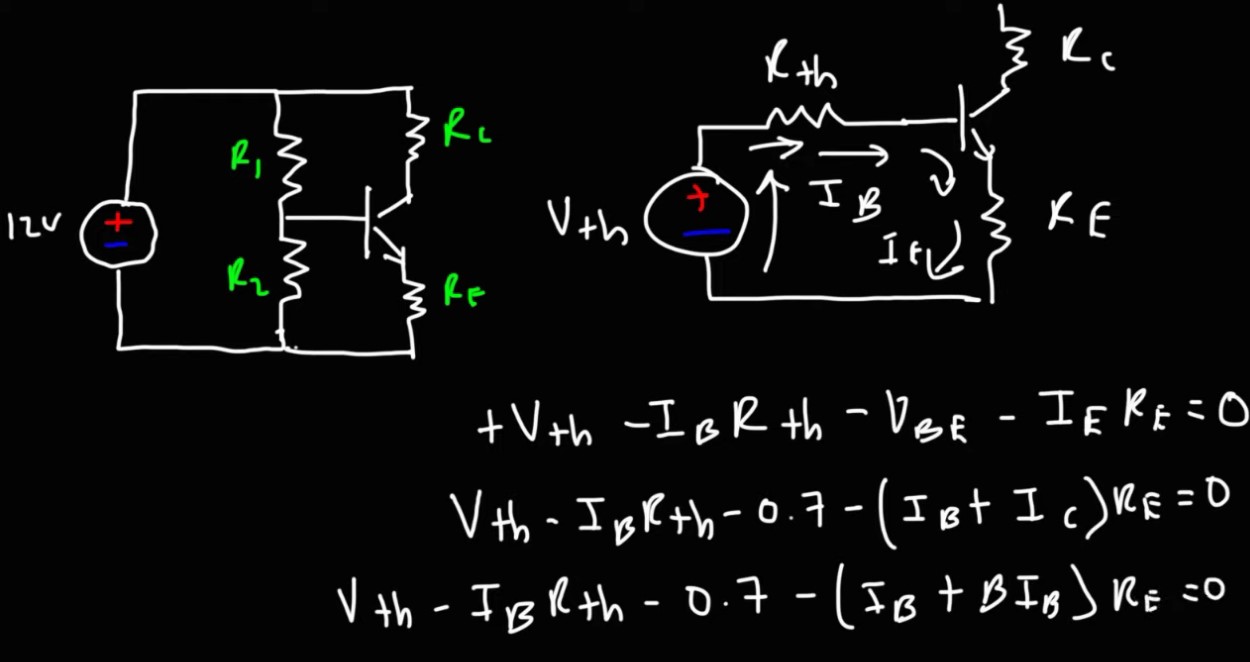 12V
+
-
R1
R2
RC
RE
Vth
+
-
Rth
IB
IE
RC
RE
+Vth - IB Rth - VBE - IE RE = 0
Vth - IB Rth - 0.7 - (IB + IC) RE = 0
Vth - IB Rth - 0.7 - (IB + BIB) RE = 0